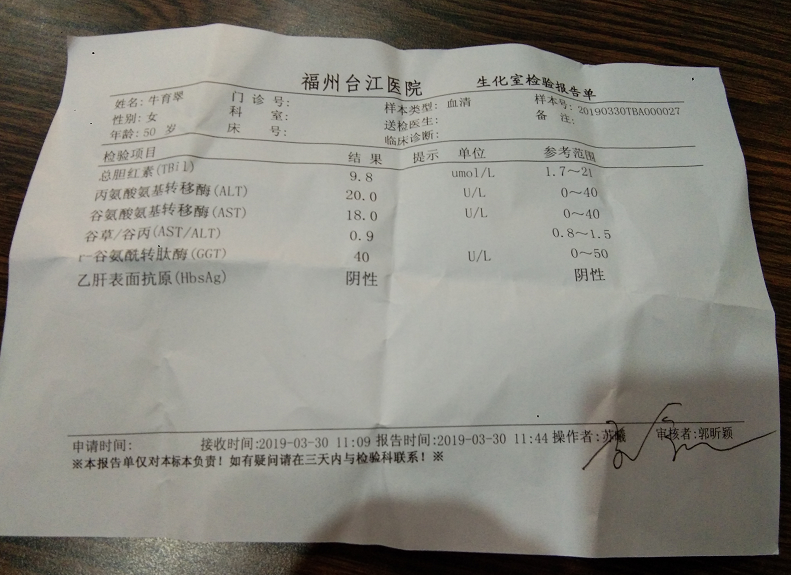 福州台江医院 生化室检验报告单
姓名:牛育翠 门诊号: 样本类型:血清 样本号:20190330TBA000027
性别:女 科室: 送检医生: 备注:
年龄:50 岁 床号: 临床诊断:
检验项目 结果 提示 单位 参考范围
总胆红素(TBil) 9.8 umol/L 1.7~21
丙氨酸氨基转移酶(ALT) 20.0 U/L 0~40
谷氨酸氨基转移酶(AST) 18.0 U/L 0~40
谷草/谷丙(AST/ALT) 0.9 0.8~1.5
r-谷氨酰转肽酶(GGT) 40 U/L 0~50
乙肝表面抗原(HbsAg) 阴性 阴性
申请时间: 接收时间:2019-03-30 11:09 报告时间:2019-03-30 11:44 操作者:苏曦 审核者:郭昕颖
※本报告单仅对本标本负责!如有疑问请在三天内与检验科联系!※